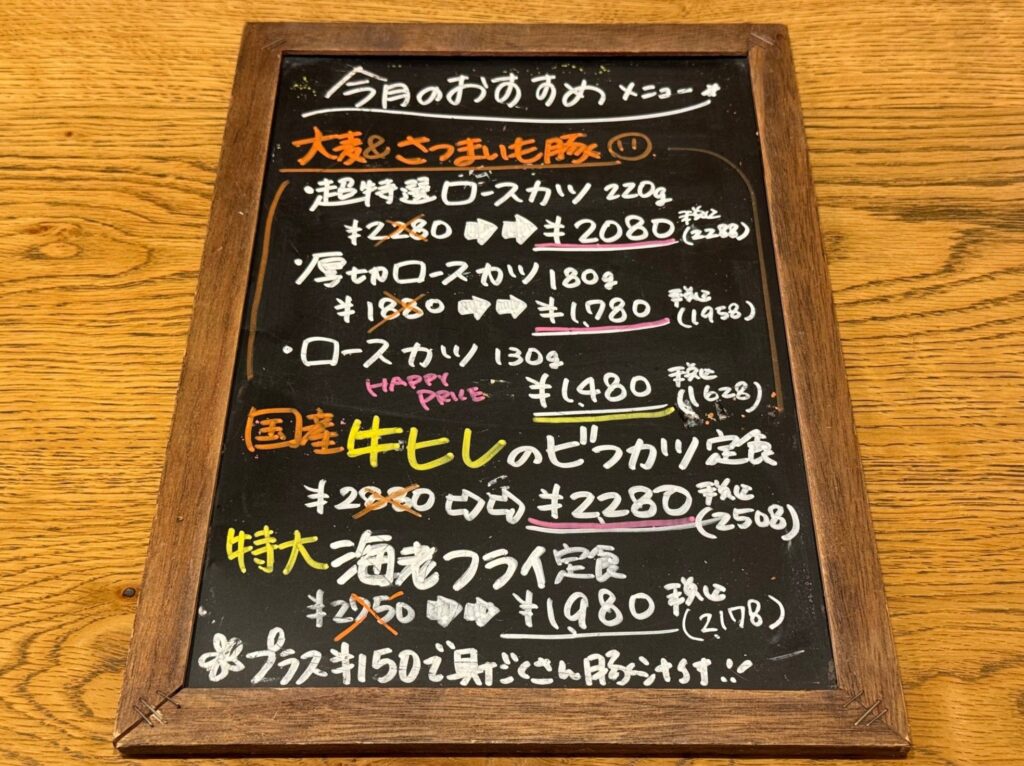 今月のおすすめメニュー
大麦&さつまいも豚
・超特選ロースカツ 220g
¥2280 ⇨⇨ ¥2080 税込(2288)
・厚切ロースカツ 180g
¥1880 ⇨⇨ ¥1,780 税込(1958)
・ロースカツ 130g
HAPPY PRICE ¥1,480 税込(1628)
国産牛ヒレのビフカツ定食
⇨⇨ ¥2,280 税込(2508)
特大海老フライ定食
⇨⇨ ¥1,980 税込(2,178)
プラス¥150で具だくさん豚汁